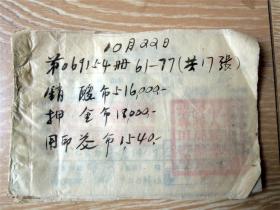 10月22日
第069154册61-77(共17張)
銷 醛 币516,000.-
押 金 币13,000.-
用印花币1,540.-